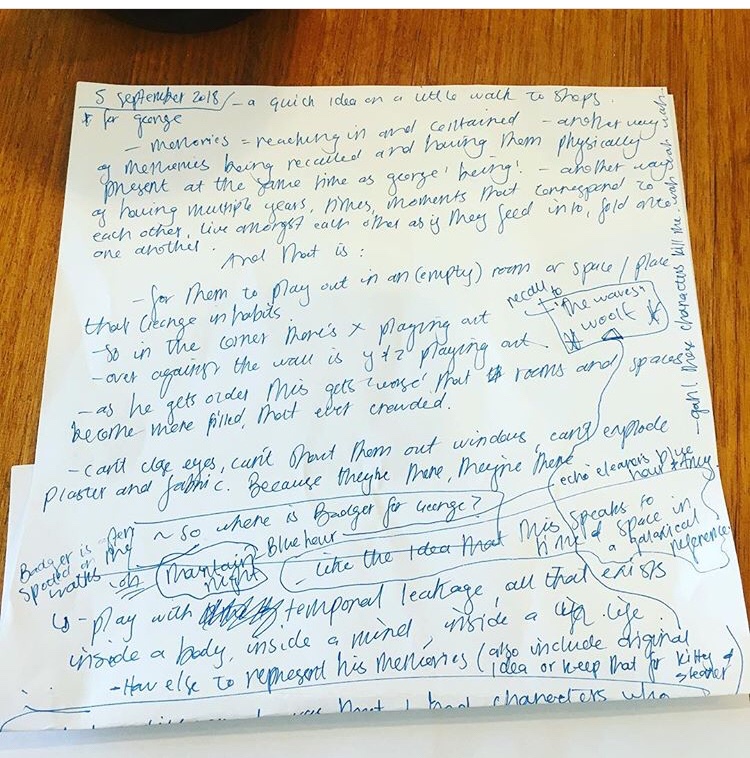 5 September 2018 / - a quick idea on a little walk to shops.
* for george
- memories = reaching in and contained - another way
of memories being recalled and having them physically
present at the same time as george 'being'. - another way
of having multiple years, times, moments that correspond to
each other, live amongst each other as if they feed into, fold onto
one another.
And that is:
- for them to play out in an (empty) room or space / place
that George inhabits.
- so in the corner there's x playing out
- over against the wall is y + z playing out.
recall to
"the waves"
* woolf *
- as he gets older this gets 'worse', that rooms and spaces
become more filled, that ever crowded.
- can't close eyes, can't shout them out windows, can't explode
plaster and fabric. Because they're there, they're there
echo eleanors blue
hour
~ So where is Badger for George?
Badger is
spotted on
walks
Blue hour
Mountain
night
- like the idea that this speaks to
time & space in
a botanical
reference
- play with temporal leakage, all that exists
inside a body, inside a mind, inside a life.
- How else to represent his memories (also include original
idea or keep that for kitty &
eleanor)
that I had characters who
- gah! these characters kill me. wah wah wah.